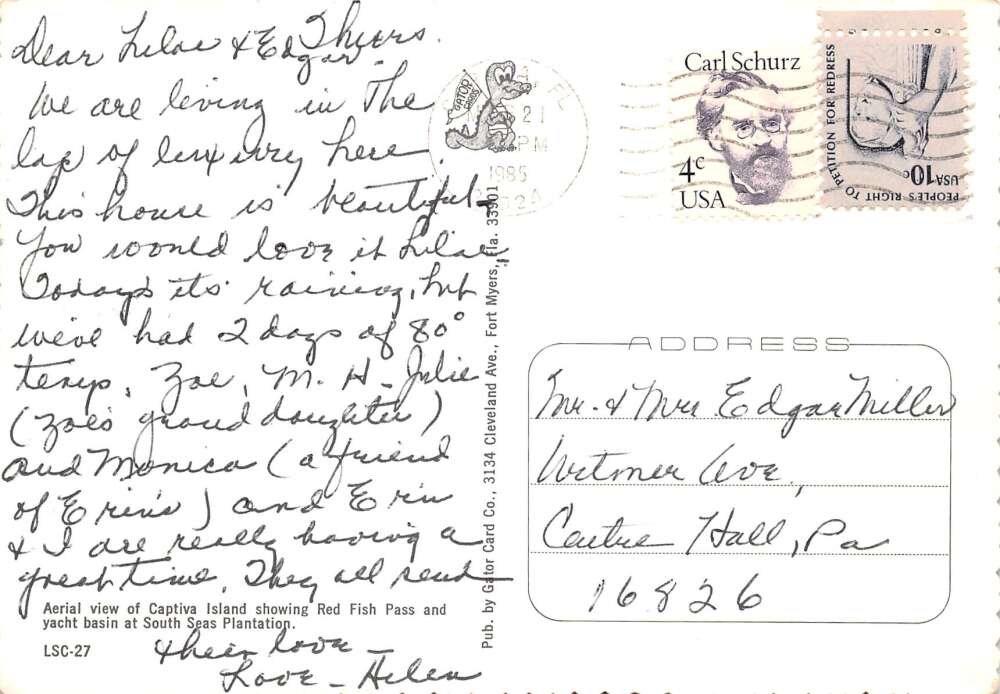 Dear Lilae & Edgar
Thurs.
We are living in the
lap of luxury here.
This house is beautiful -
You would love it Lilae,
Today its raining, but
weve had 2 days of 80°
temps. Zoe, M. H - Julie
(Zoe's granddaughter)
and Monica (a friend
of Erin's) and Erin
& I are really having a
great time. They all send
their love -
Love - Helen
Aerial view of Captiva Island showing Red Fish Pass and
yacht basin at South Seas Plantation.
LSC-27
Pub. by Gator Card Co., 3134 Cleveland Ave., Fort Myers, Fla. 33901
GATOR
CARDS
FL
21
PM
1985
Carl Schurz
4c
USA
PEOPLE'S RIGHT TO PETITION FOR REDRESS
USA 10c
ADDRESS
Mr. & Mrs Edgar Miller
Witmer Ave,
Centre Hall, Pa
16826